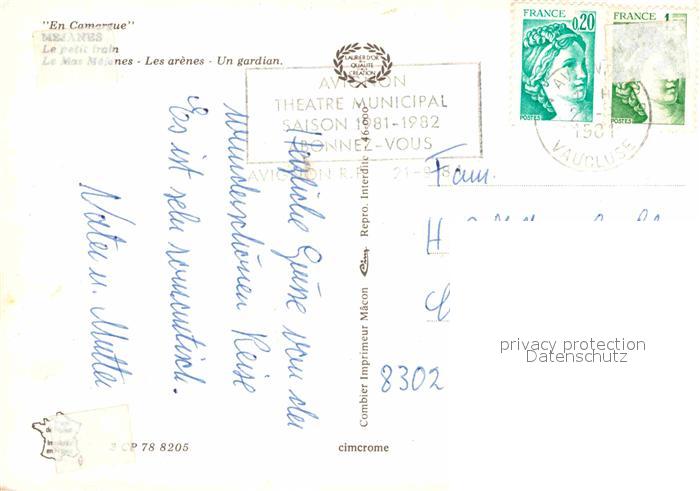 "En Camargue"
MEJANES
Le petit train
Le Mas Méjanes - Les arènes - Un gardian.
LAURIER D'OR
QUALITÉ
CRÉATION
FRANCE
0,20
POSTES
FRANCE
POSTES
AVIGNON
THEATRE MUNICIPAL
SAISON 1981-1982
ABONNEZ-VOUS
AVIGNON R.P. 21-9-81
1981
VAUCLUSE
Herzliche Grüße von der
wunderschönen Reise
Es ist sehr romantisch.
Vater u. Mutter
Combier Imprimeur Mâcon Cim Repro. Interdite 46.000
Fam.
H
8302
privacy protection
Datenschutz
3 CP 78 8205
cimcrome